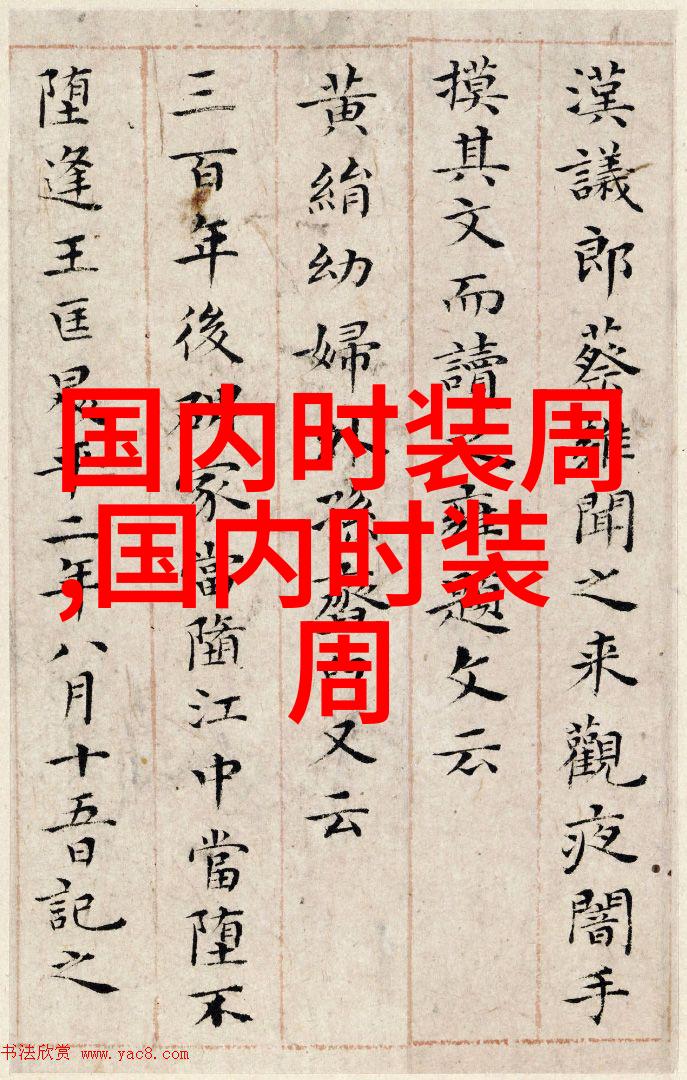 漢議郎蔡雍聞之来觀夜闇手
摸其文而讀之雍題文云
黄絹幼婦外孫又云
三百年後碑冢當墮江中當墮不
墮逢王匡昇平二年八月十五日記之
国内时装周
,国内时装
周
书法欣赏 www.yac8.com